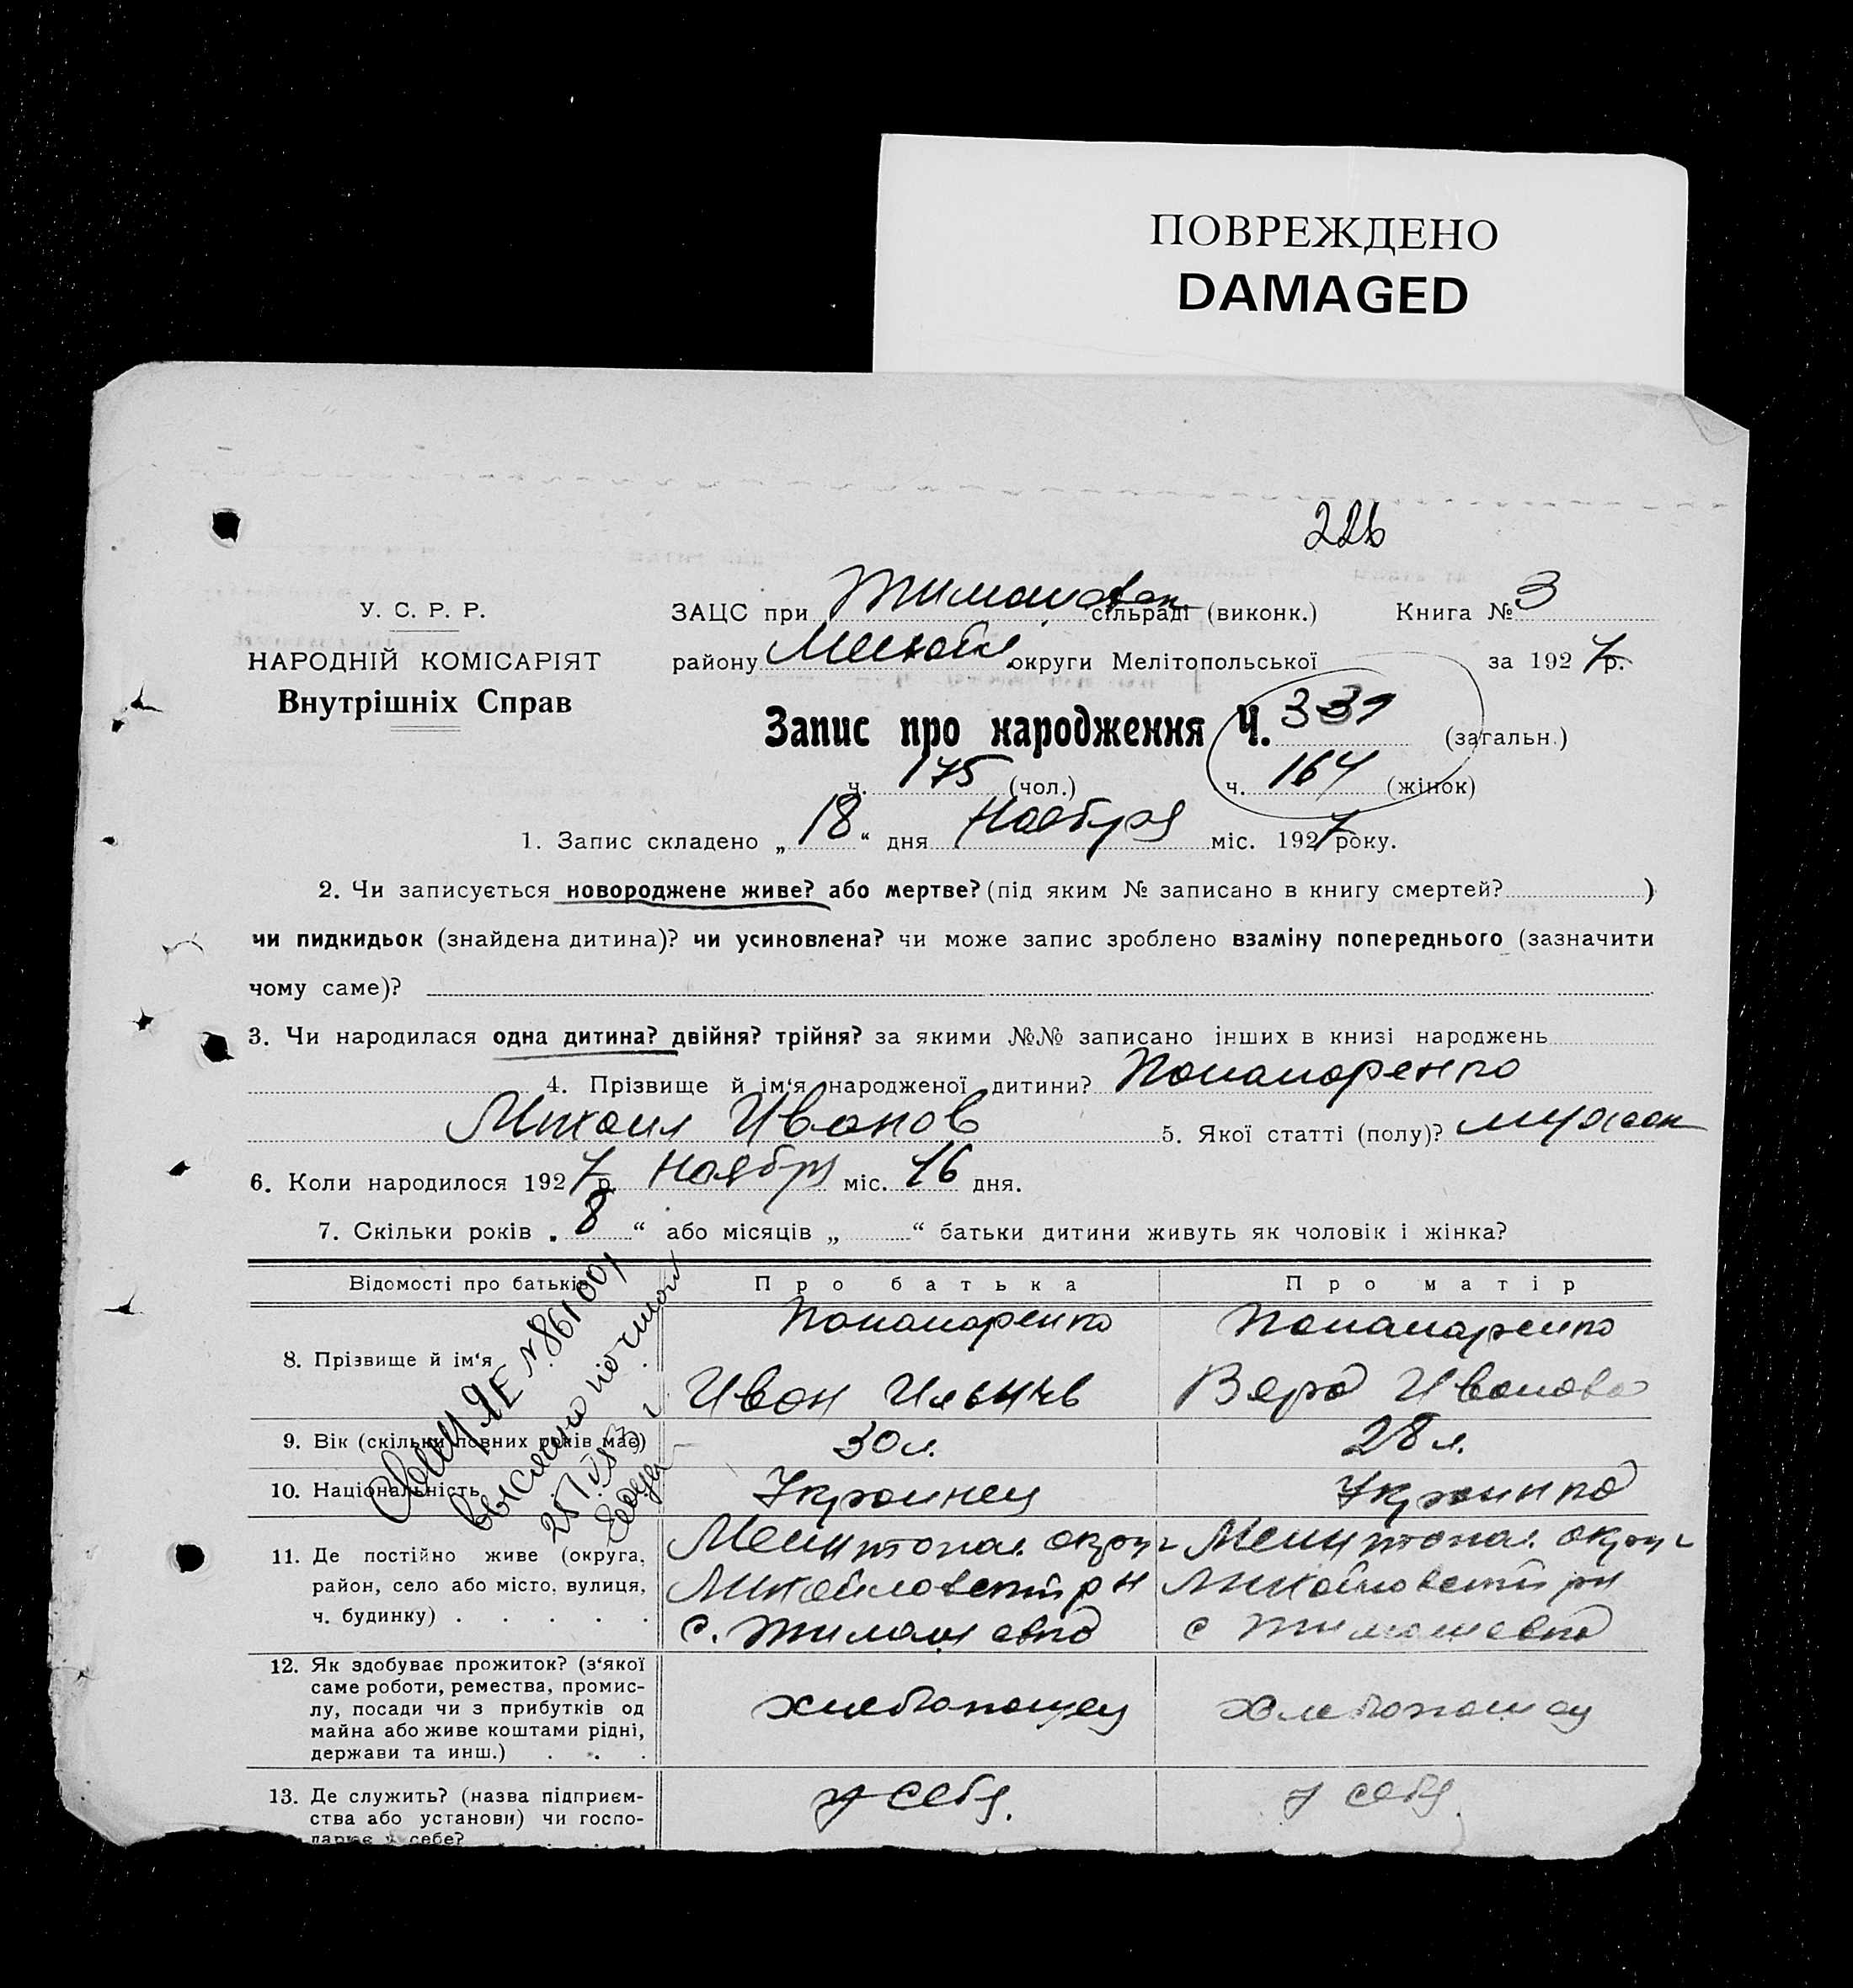 ПОВРЕЖДЕНО
DAMAGED
226
У. С. Р. Р.
НАРОДНІЙ КОМІСАРІЯТ
Внутрішніх Справ
ЗАЦС при Тимошовск сільраді (виконк.) Книга № 3
району округи Мелітопольської за 1927 р.
Запис про народження Ч. 339 (загальн.)
ч. 175 (чол.) ч. 164 (жінок)
1. Запис складено „ 18 “ дня Ноября міс. 1927 року.
2. Чи записується новороджене живе? або мертве? (під яким № записано в книгу смертей? )
чи пидкидьок (знайдена дитина)? чи усиновлена? чи може запис зроблено взаміну попереднього (зазначити
чому саме)?
3. Чи народилася одна дитина? двійня? трійня? за якими №№ записано інших в книзі народжень
4. Прізвище й ім‘я народженої дитини? Понамаренко
Михаил Иванов 5. Якої статті (полу)? мужск
6. Коли народилося 1927 р. Ноябр міс. 16 дня.
7. Скільки років „ 8 “ або місяців „ “ батьки дитини живуть як чоловік і жінка?
Відомості про батьків Про батька Про матір
8. Прізвище й ім‘я
Понамаренко Понамаренко
Иван Ильичь Вера Иванова
9. Вік (скільки повних років має) 30 л. 28 л.
10. Національність Украинец Украинка
11. Де постійно живе (округа, район, село або місто, вулиця, ч. будинку)
Мелитопол. округ Мелитопол. округ
Михайловский рн Михайловский рн
с. Тимошевка с Тимошевка
12. Як здобуває прожиток? (з‘якої
саме роботи, ремества, промис-
лу, посади чи з прибутків од
майна або живе коштами рідні,
держави та инш.)
хлебопашец хлебопашец
13. Де служить? (назва підприєм-
ства або установи) чи госпо-
дарює у себе?
у себя. у себя.
ЯЕ № 861001